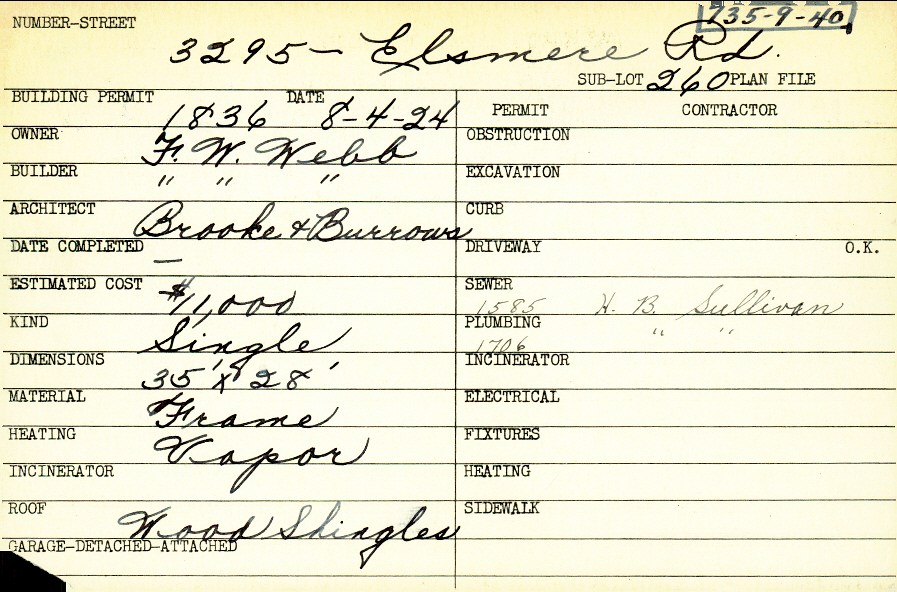 735-9-40
NUMBER-STREET
3295- Elsmere Rd.
SUB-LOT 260 PLAN FILE
BUILDING PERMIT DATE
1836 8-4-24
PERMIT CONTRACTOR
OWNER F. W. Webb
OBSTRUCTION
BUILDER " " "
EXCAVATION
ARCHITECT Brooke & Burrows
CURB
DATE COMPLETED —
DRIVEWAY O.K.
ESTIMATED COST $11,000
SEWER
1585 H. B. Sullivan
KIND Single
PLUMBING " "
1706
DIMENSIONS 35' x 28'
INCINERATOR
MATERIAL Frame
ELECTRICAL
HEATING Vapor
FIXTURES
INCINERATOR
HEATING
ROOF Wood Shingles
SIDEWALK
GARAGE-DETACHED-ATTACHED